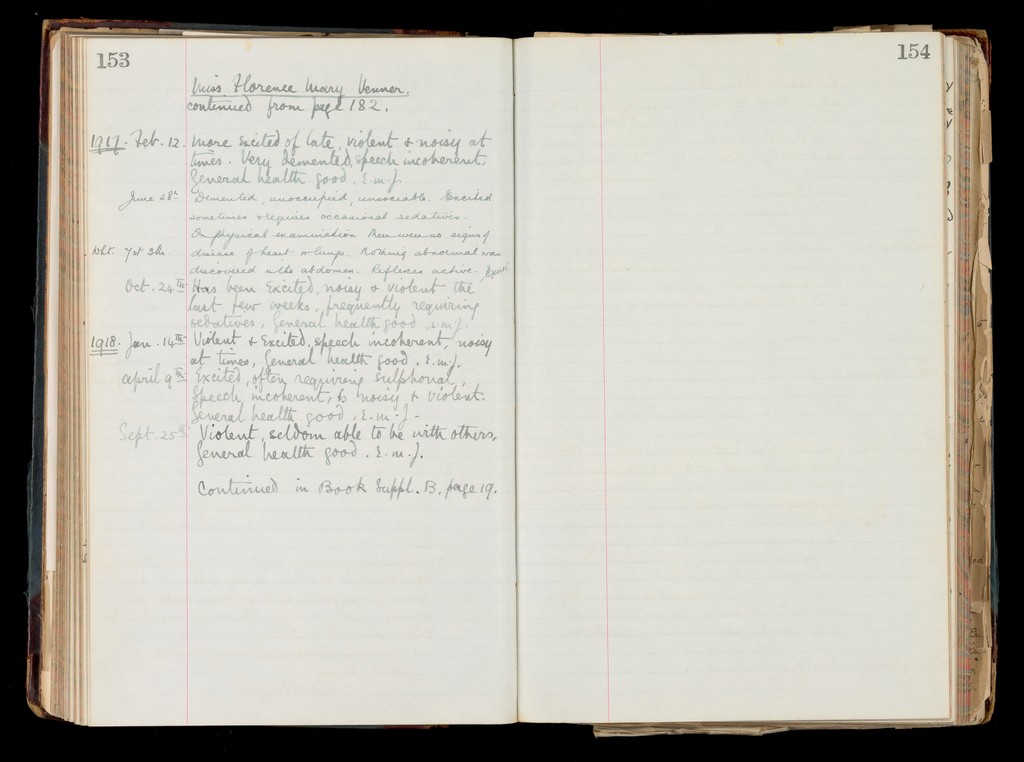 153
Miss Florence Mary Venner.
continued from page 182.
1917. Feb. 12. More excited of late, violent & noisy at
times. Very demented, speech incoherent.
General health good. E.M.J.
June 28th Demented, unoccupied, unsociable. Excited
sometimes & requires occasional sedatives.
On physical examination there were no signs of
Wht. 7st 3lb. disease of heart or lungs. Nothing abnormal was
discovered in the abdomen. Reflexes active.
Oct. 24th Has been excited, noisy & violent the
last few weeks, frequently requiring
sedatives, General health good. E.M.J.
1918. Jan. 14th Violent & Excited, speech incoherent, noisy
at times, General health good. E.M.J.
April 9th Excited, often requiring sulphonal,
Speech incoherent, is noisy & violent.
General health good. E.M.J.
Sept. 25th Violent, seldom able to be with others,
General health good. E.M.J.
Continued in Book Suppl. B. page 19.
154